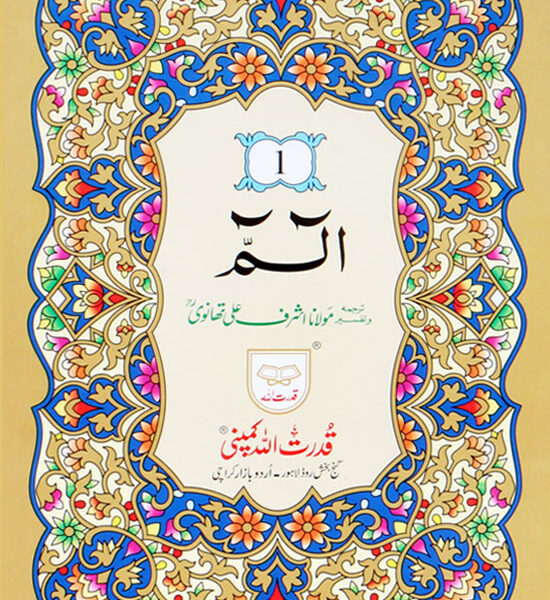 1
الٓـمّٓ
ترجمہ و تفسیر مولانا اشرف علی تھانویؒ
®
قدرت اللہ
قدرت اللہ کمپنی ®
گنج بخش روڈ لاہور - اُردو بازار کراچی